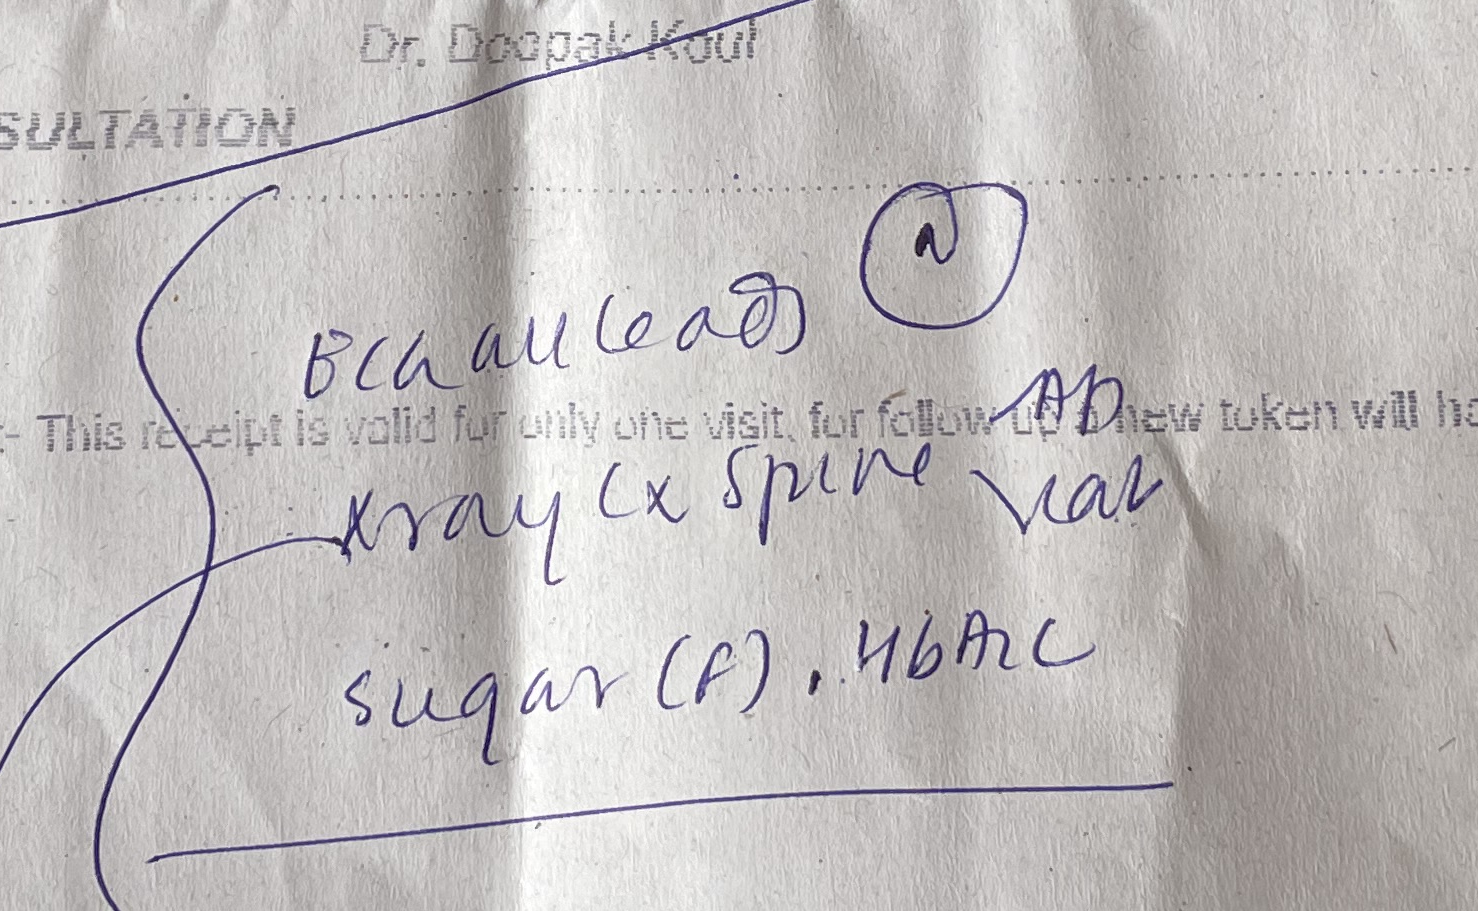 Dr. Deepak Koul
SULTATION
N
ECG all leads
AP
:- This receipt is valid for only one visit, for follow up a new token will ha
Xray Cx Spine
Lat
sugar (F), HbA1C